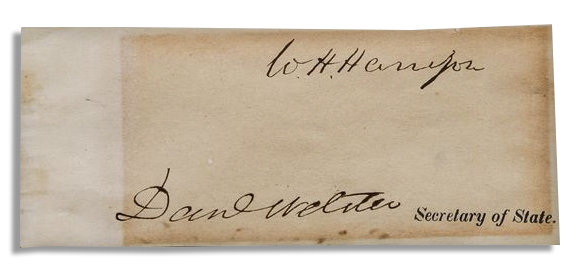 W. H. Harrison
Danl Webster Secretary of State.